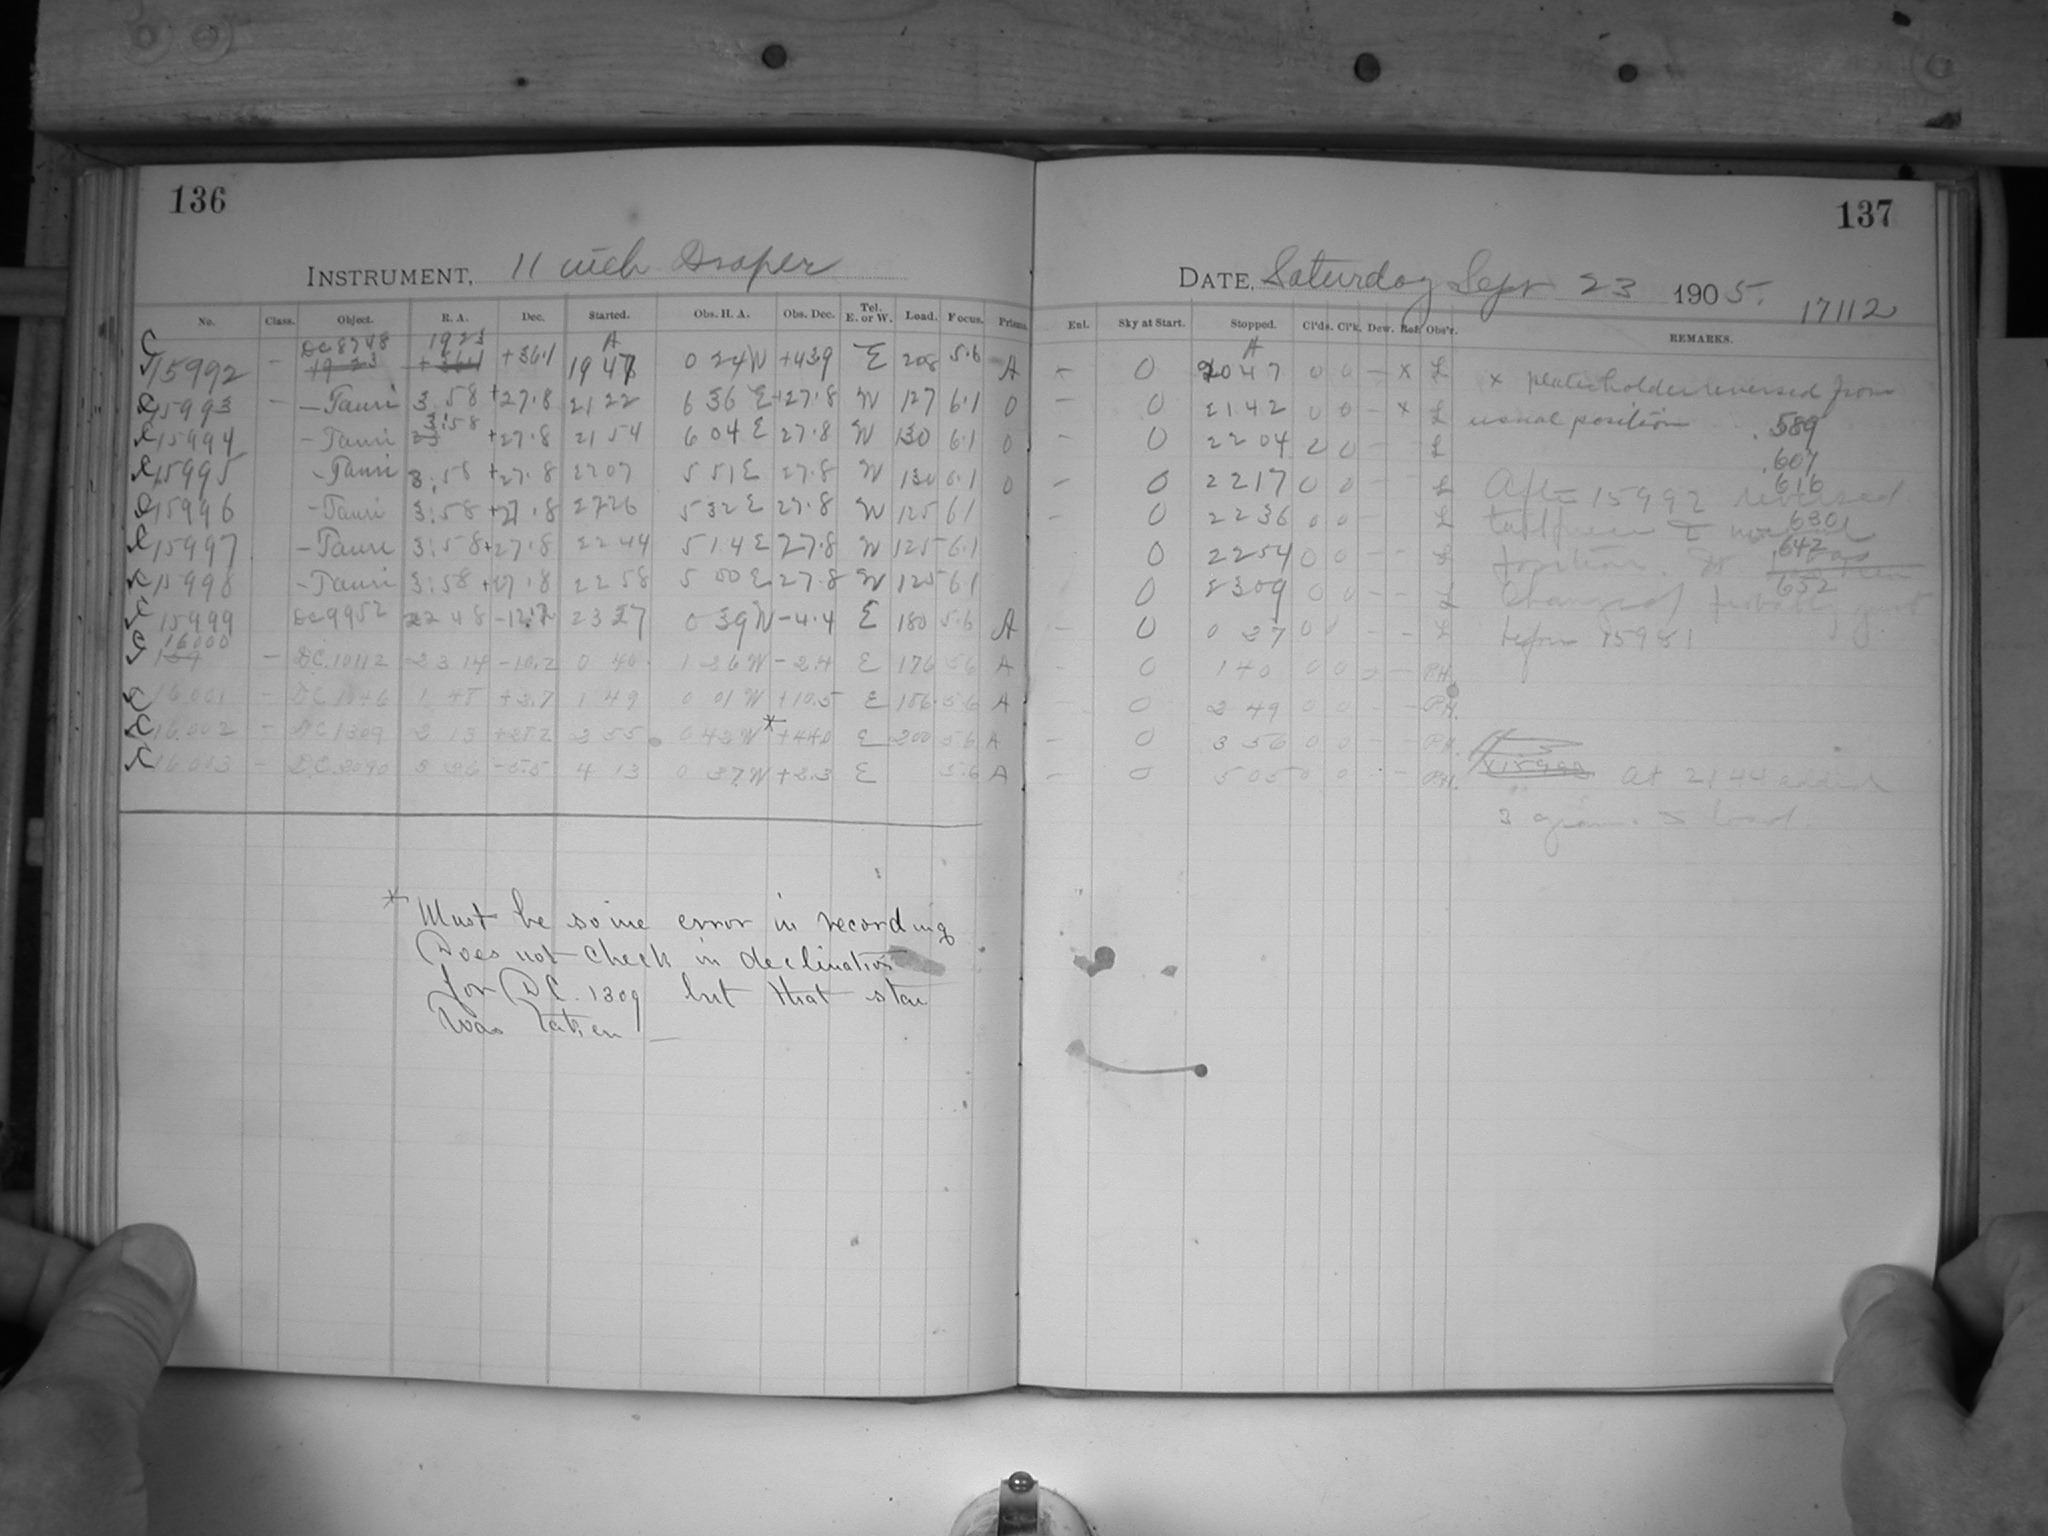 136
137
INSTRUMENT, 11 inch Draper
DATE, Saturday Sept 23 1905.
17112
No. Class. Object. R. A. Dec. Started. Obs. H. A. Obs. Dec. Tel. E. or W. Load. Focus. Prisms. Enl. Sky at Start. Stopped. Cl'ds. Cl'k. Dew. Ref. Obs'r. REMARKS.
C 15992 – DC 8748 19 23 +36.1 A 19 47 0 24 W +43.9 E 208 5.6 A – 0 A 2047 0 0 – x L x plateholder reversed from
15993 – – Tauri 3.58 +27.8 2122 6 36 E +27.8 W 127 6.1 0 – 0 2142 0 0 – x L usual position .589
15994 – Tauri 3.58 +27.8 2154 6 04 E 27.8 W 130 6.1 0 – 0 2204 0 0 – L .607
15995 – Tauri 3.58 +27.8 2207 5 51 E 27.8 W 130 6.1 0 – 0 2217 0 0 – L .616
After 15992 reversed
15996 – Tauri 3.58 +27.8 2226 5 32 E 27.8 W 125 6.1 – 0 2236 0 0 – L .630
15997 – Tauri 3.58 +27.8 2244 5 14 E 27.8 W 125 6.1 0 2254 0 0 – – L position. .642
15998 – Tauri 3.58 +27.8 2258 5 00 E 27.8 W 125 6.1 0 2309 0 0 – – L .652
changed probably just
15999 DC 9952 22 48 2327 0 39 W –4.4 E 180 5.6 A – 0 0 27 0 0 – – L before 15981
16000 – DC. 10112 23 14 –10.2 0 40 1 26 W –2.4 E 176 5.6 A – 0 1 40 0 0 – – P.H.
16.001 – DC 1046 1 48 +3.7 1 49 0 01 W +10.5 E 186 5.6 A – 0 2 49 0 0 – – P.H.
16.002 – DC 1309 2 13 2 55 0 42 W * +44.0 E 200 5.6 A – 0 3 56 0 0 – – P.H.
16.003 – –5.5 4 13 0 37 W +2.3 E 5.6 A – 0 5 05 0 0 – – P.H. At 2144 added
3 grams to load.
* Must be some error in recording
Does not check in declination
for DC. 1309 but that star
was taken –